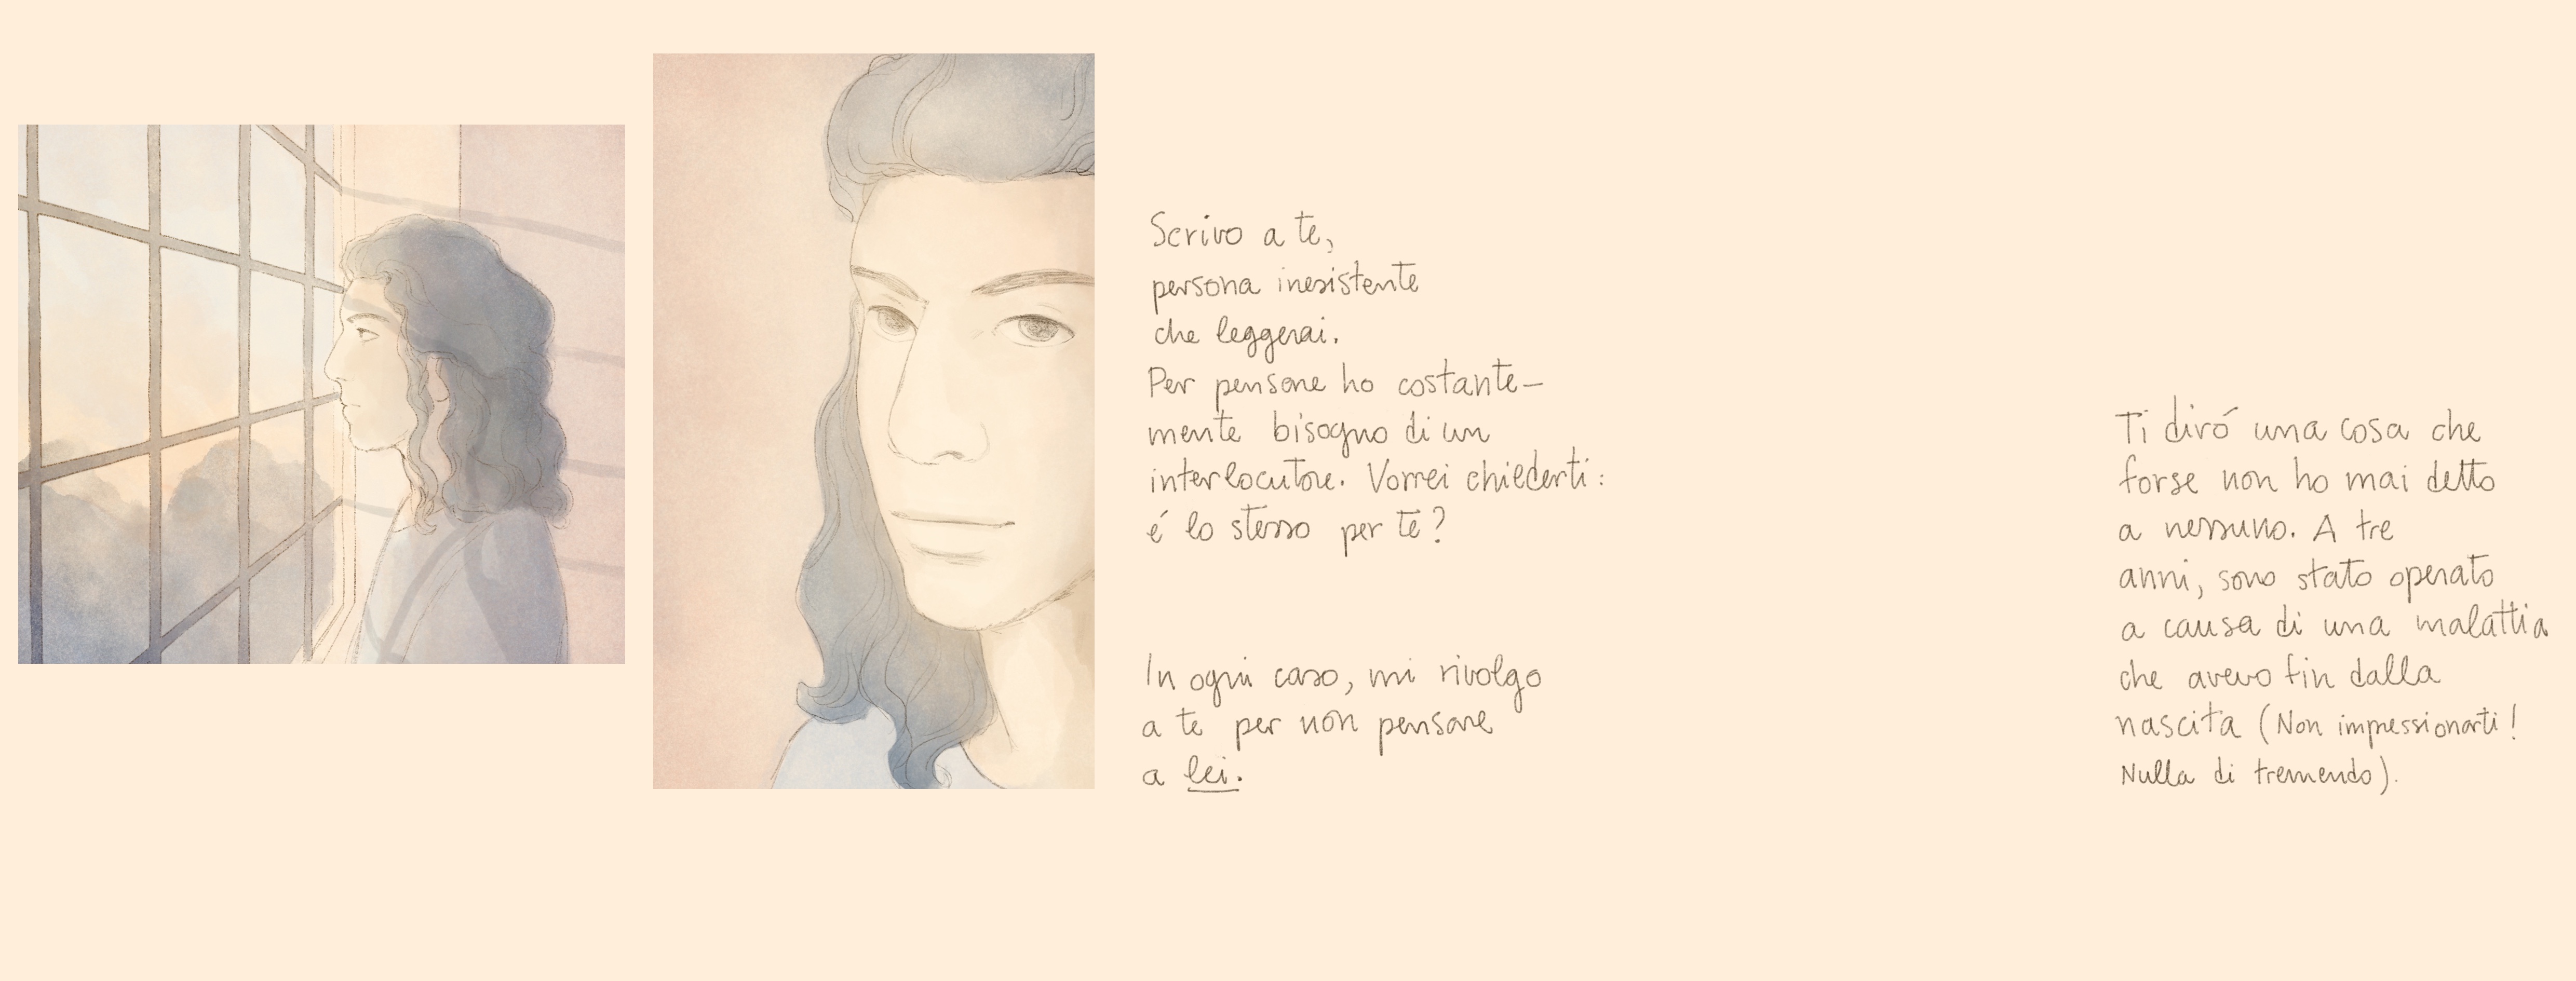 Scrivo a te,
persona inesistente
che leggerai.
Per pensare ho costante-
mente bisogno di un
interlocutore. Vorrei chiederti:
é lo stesso per te?
In ogni caso, mi rivolgo
a te per non pensare
a lei.
Ti diró una cosa che
forse non ho mai detto
a nessuno. A tre
anni, sono stato operato
a causa di una malattia
che avevo fin dalla
nascita (Non impressionarti!
Nulla di tremendo).